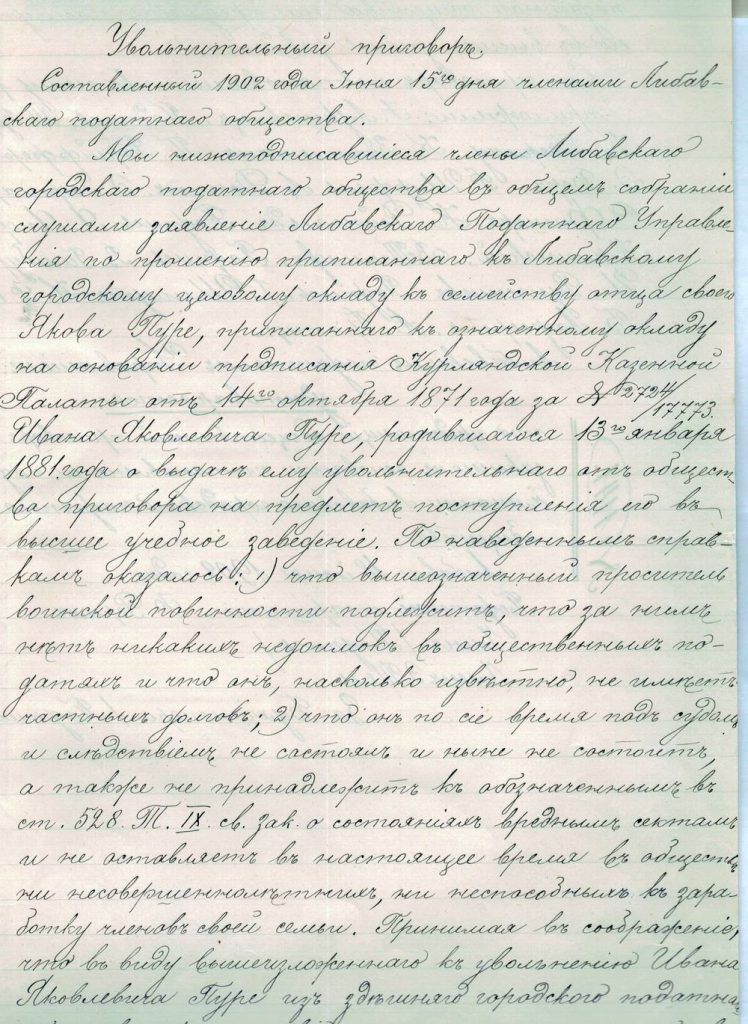 Увольнительный приговоръ.
Составленный 1902 года Іюня 15го дня членами Либав-
скаго податнаго общества.
Мы нижеподписавшіеся члены Либавскаго
городскаго податнаго общества въ общемъ собраніи
слушали заявленіе Либавскаго Податнаго Управле-
нія по прошенію приписаннаго къ Либавскому
городскому цеховому окладу къ семейству отца своего
Якова Пуре, приписаннаго къ означенному окладу
на основаніи предписанія Курляндской Казенной
Палаты отъ 14го октября 1871 года за № 2724/17773.
Ивана Яковлевича Пуре, родившагося 13го января
1881. года о выдачѣ ему увольнительнаго отъ общест-
ва приговора на предметъ поступленія его въ
высшее учебное заведеніе. По наведеннымъ справ-
камъ оказалось: 1) что вышеозначенный проситель
воинской повинности подлежитъ, что за нимъ
нѣтъ никакихъ недоимокъ въ общественныхъ по-
датяхъ и что онъ, насколько извѣстно, не имѣетъ
частныхъ долговъ; 2) что онъ по сіе время подъ судомъ
и слѣдствіемъ не состоялъ и ныне не состоитъ,
а также не принадлежитъ къ обозначеннымъ въ
ст. 528. Т. IX. св. зак. о состояніяхъ вреднымъ сектамъ
и не оставляетъ въ настоящее время въ обществѣ
ни несовершеннолѣтнихъ, ни неспособныхъ къ зара-
ботку членовъ своей семьи. Принимая въ соображеніе,
что въ виду вышеизложеннаго къ увольненію Ивана
Яковлевича Пуре изъ здѣшняго городского податна-